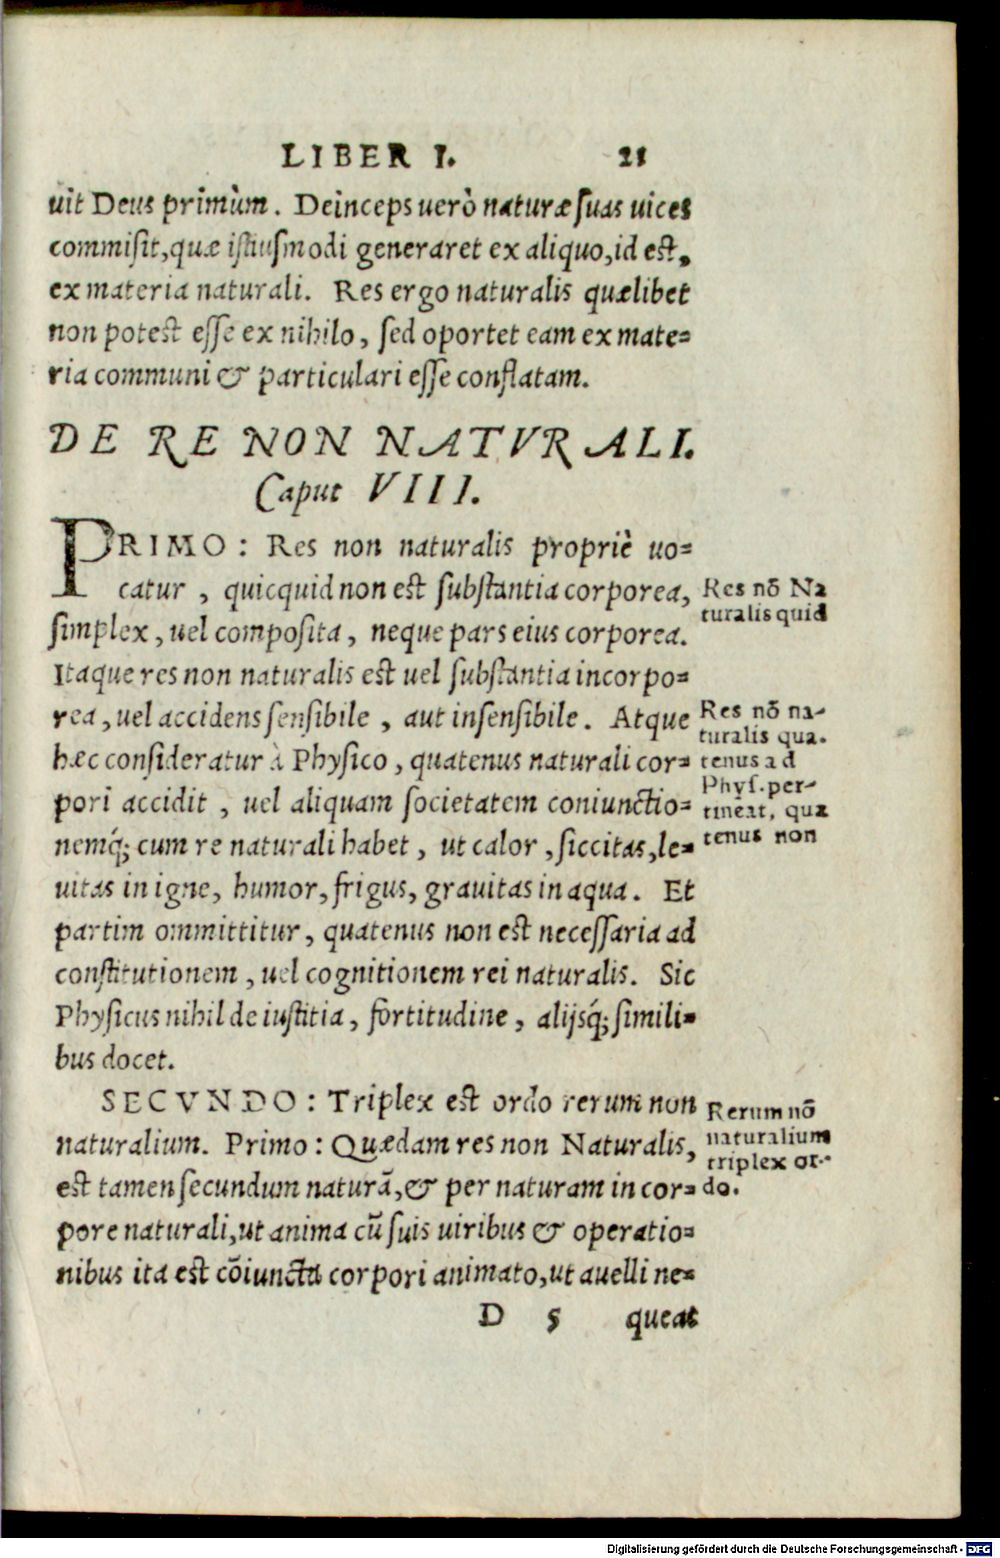 LIBER I. 21
uit Deus primùm. Deinceps uerò naturæ suas uices
commisit, quæ istiusmodi generaret ex aliquo, id est,
ex materia naturali. Res ergo naturalis quælibet
non potest esse ex nihilo, sed oportet eam ex mate=
ria communi & particulari esse conflatam.
DE RE NON NATVRALI.
Caput VIII.
PRIMO: Res non naturalis propriè uo=
catur, quicquid non est substantia corporea,
simplex, uel composita, neque pars eius corporea.
Itaque res non naturalis est uel substantia incorpo=
rea, uel accidens sensibile, aut insensibile. Atque
hæc consideratur à Physico, quatenus naturali cor=
pori accidit, uel aliquam societatem coniunctio=
nemq́; cum re naturali habet, ut calor, siccitas, le=
uitas in igne, humor, frigus, grauitas in aqua. Et
partim ommittitur, quatenus non est necessaria ad
constitutionem, uel cognitionem rei naturalis. Sic
Physicus nihil de iustitia, fortitudine, alijsq́; simili=
bus docet.
SECVNDO: Triplex est ordo rerum non
naturalium. Primo: Quædam res non Naturalis,
est tamen secundum naturā, & per naturam in cor=
pore naturali, ut anima cū suis uiribus & operatio=
nibus ita est cōiuncta corpori animato, ut auelli ne=
D 5 queat
Res nō Na
turalis quid
Res nō na-
turalis qua.
tenus ad
Phys. per-
tineat, qua
tenus non
Rerum nō
naturalium
triplex or-
do.
Digitalisierung gefördert durch die Deutsche Forschungsgemeinschaft - DFG